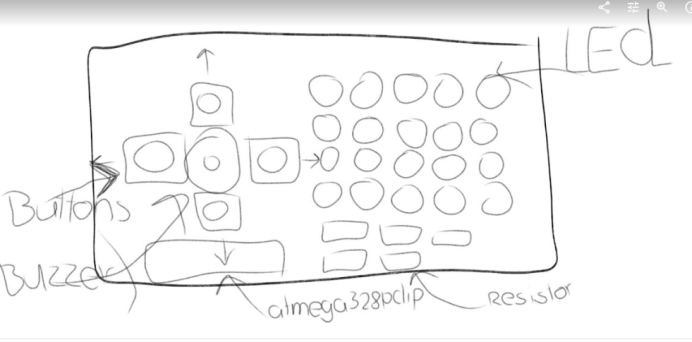 LEd
Buttons
Buzzer
atmega328pclip
Resistor